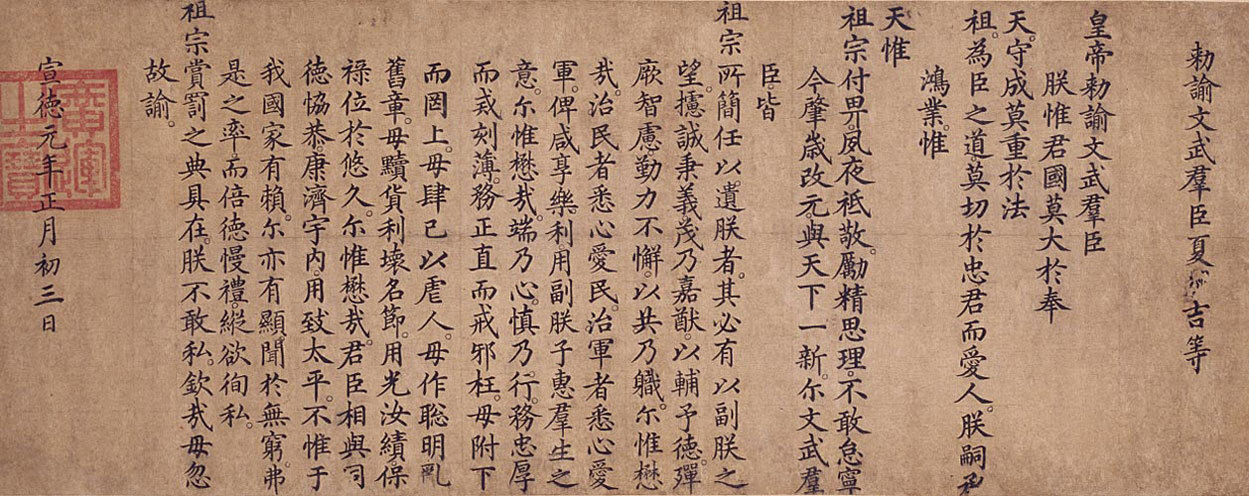 勅諭文武羣臣夏吉等
皇帝勅諭文武羣臣
朕惟君國莫大於奉
天。守成莫重於法
祖。為臣之道。莫切於忠君而愛人。朕嗣承
鴻業。惟
天惟
祖宗付畀。夙夜祗敬。勵精思理。不敢怠寧
今肇歲改元。與天下一新。尔文武羣
臣。皆
祖宗所簡任以遺朕者。其必有以副朕之
望。攄誠秉義。茂乃嘉猷。以輔予德。殫
厥智慮。勤力不懈。以共乃職。尔惟懋
㢤。治民者悉心愛民。治軍者悉心愛
軍。俾咸享樂利。用副朕子惠羣生之
意。尔惟懋㢤。端乃心。慎乃行。務忠厚
而戒刻薄。務正直而戒邪枉。毋附下
而罔上。毋肆己以虐人。毋作聡明亂
舊章。毋黷貨利壞名節。用光汝績。保
祿位於悠久。尔惟懋㢤。君臣相與。同
德恊恭。康濟宇內。用致太平。不惟于
我國家有賴。尔亦有顯聞於無窮。弗
是之率。而倍德慢禮。縱欲徇私。
祖宗賞罰之典具在。朕不敢私。欽㢤毋忽
故諭。
宣德元年正月初三日
廣運
之寶